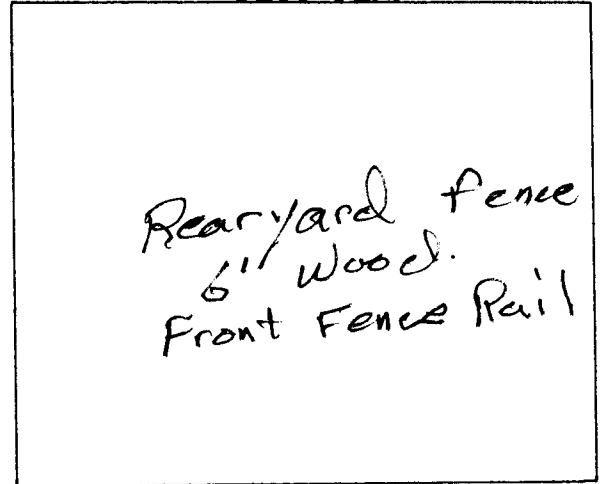 Rearyard fence
6' Wood.
Front Fence Rail